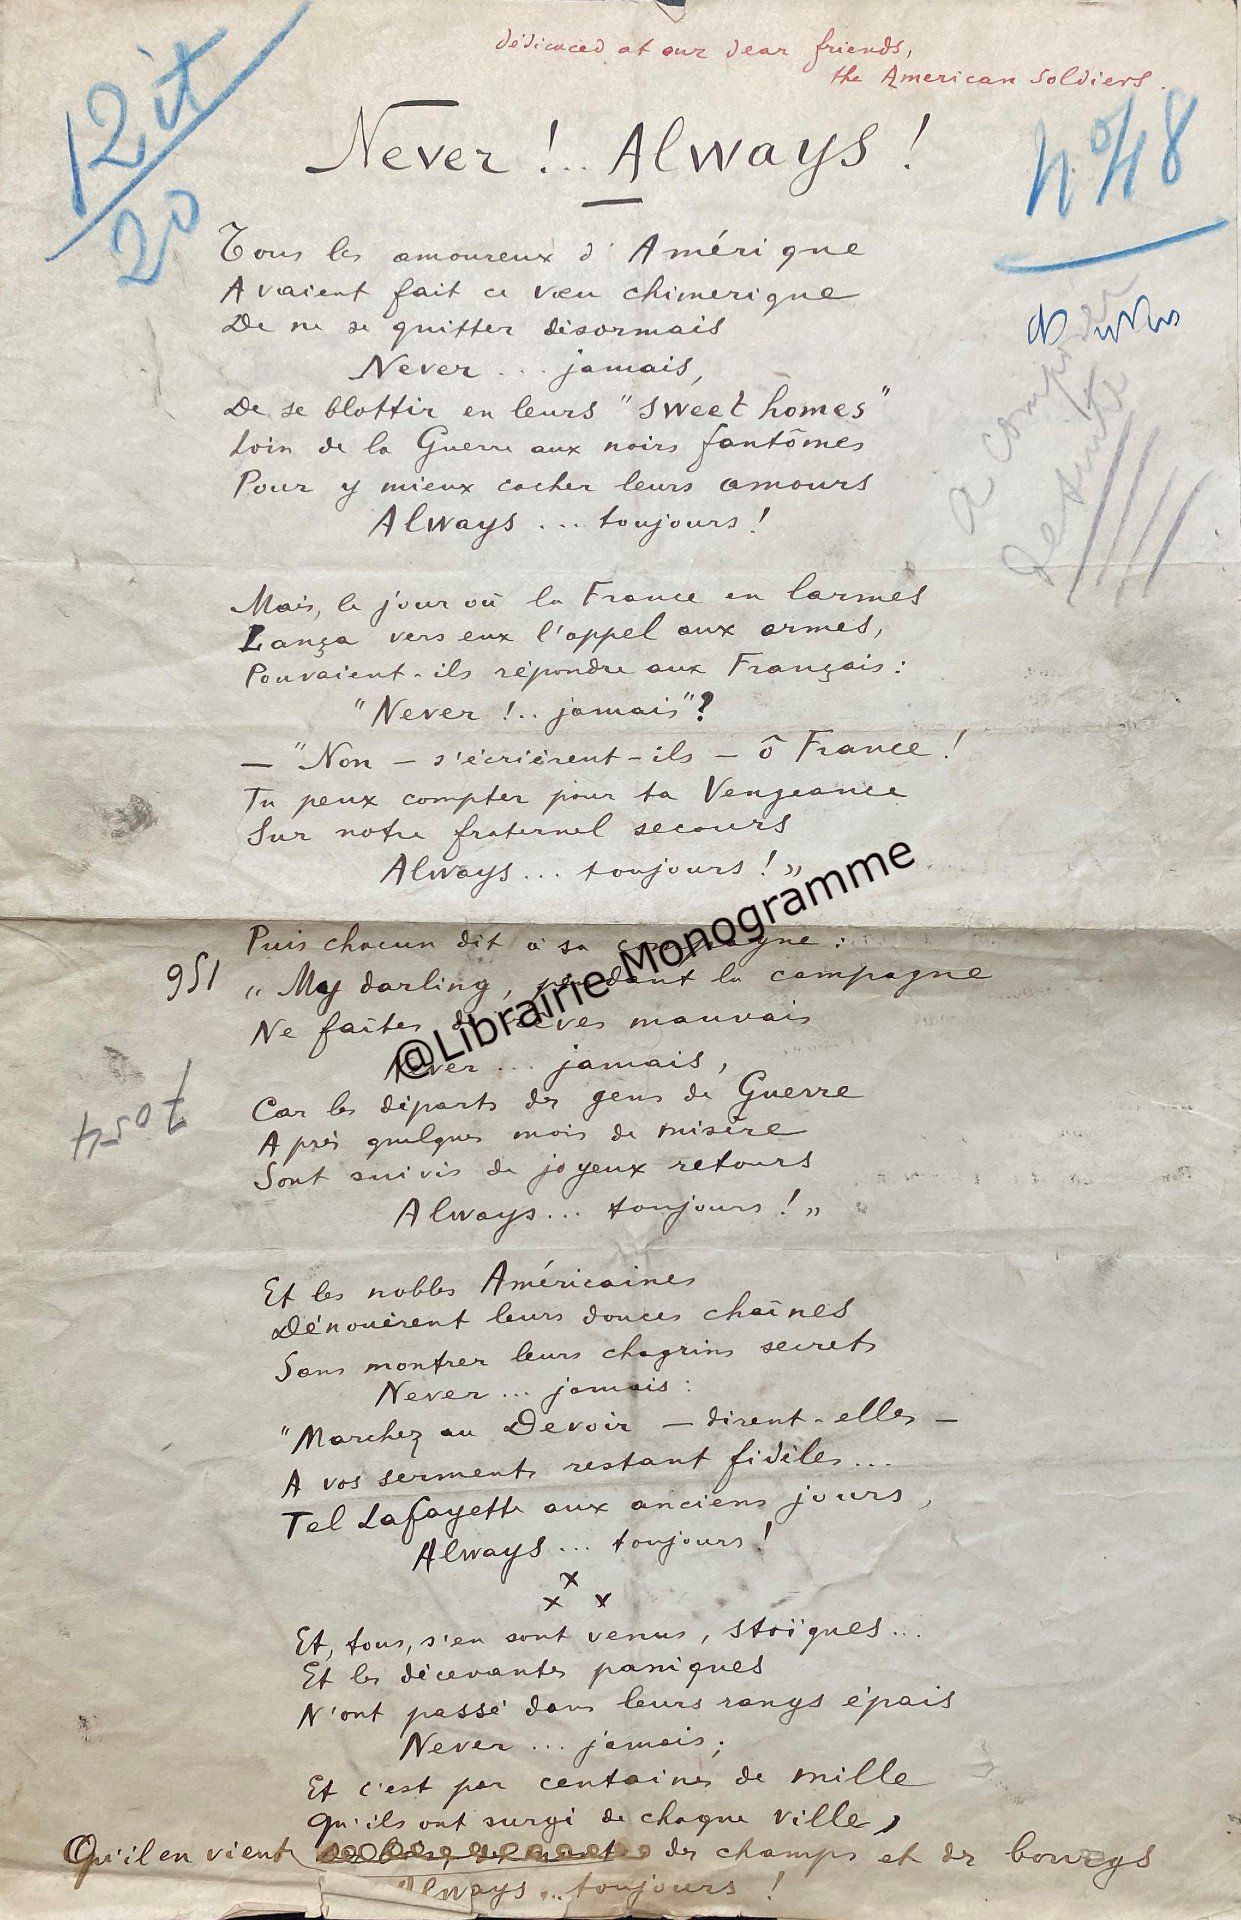 dédicaced at our dear friends,
the American Soldiers.
12 it
20
Never !.. Always !
No 48
Tous les amoureux d'Amérique
Avaient fait ce vœu chimerique
De ne se quitter désormais
Never ... jamais,
De se blottir en leurs "sweet homes"
Loin de la Guerre aux noirs fantômes
Pour y mieux cacher leurs amours
Always ... toujours !
a composer
de suite
Mais, le jour où la France en larmes
Lança vers eux l'appel aux armes,
Pouvaient-ils répondre aux Français :
"Never !.. jamais"?
— "Non — s'écrièrent-ils — ô France !
Tu peux compter pour ta Vengeance
Sur notre fraternel secours
Always ... toujours ! »
Puis chacun dit à sa compagne :
951
« My darling, pendant la campagne
Ne faîtes de rêves mauvais
Never ... jamais,
Car les départs des gens de Guerre
7054
Après quelques mois de misère
Sont suivis de joyeux retours
Always ... toujours ! »
Et les nobles Américaines
Dénouèrent leurs douces chaînes
Sans montrer leurs chagrins secrets
Never ... jamais :
"Marchez au Devoir — dirent-elles —
A vos serments restant fidèles ...
Tel Lafayette aux anciens jours,
Always ... toujours !
x
x x
Et, tous, s'en sont venus, stoïques ...
Et les décevantes paniques
N'ont passé dans leurs rangs épais
Never ... jamais ;
Et c'est par centaines de mille
Qu'ils ont surgi de chaque ville,
Qu'il en vient des champs et des bourgs
Always ... toujours !
@Librairie Monogramme